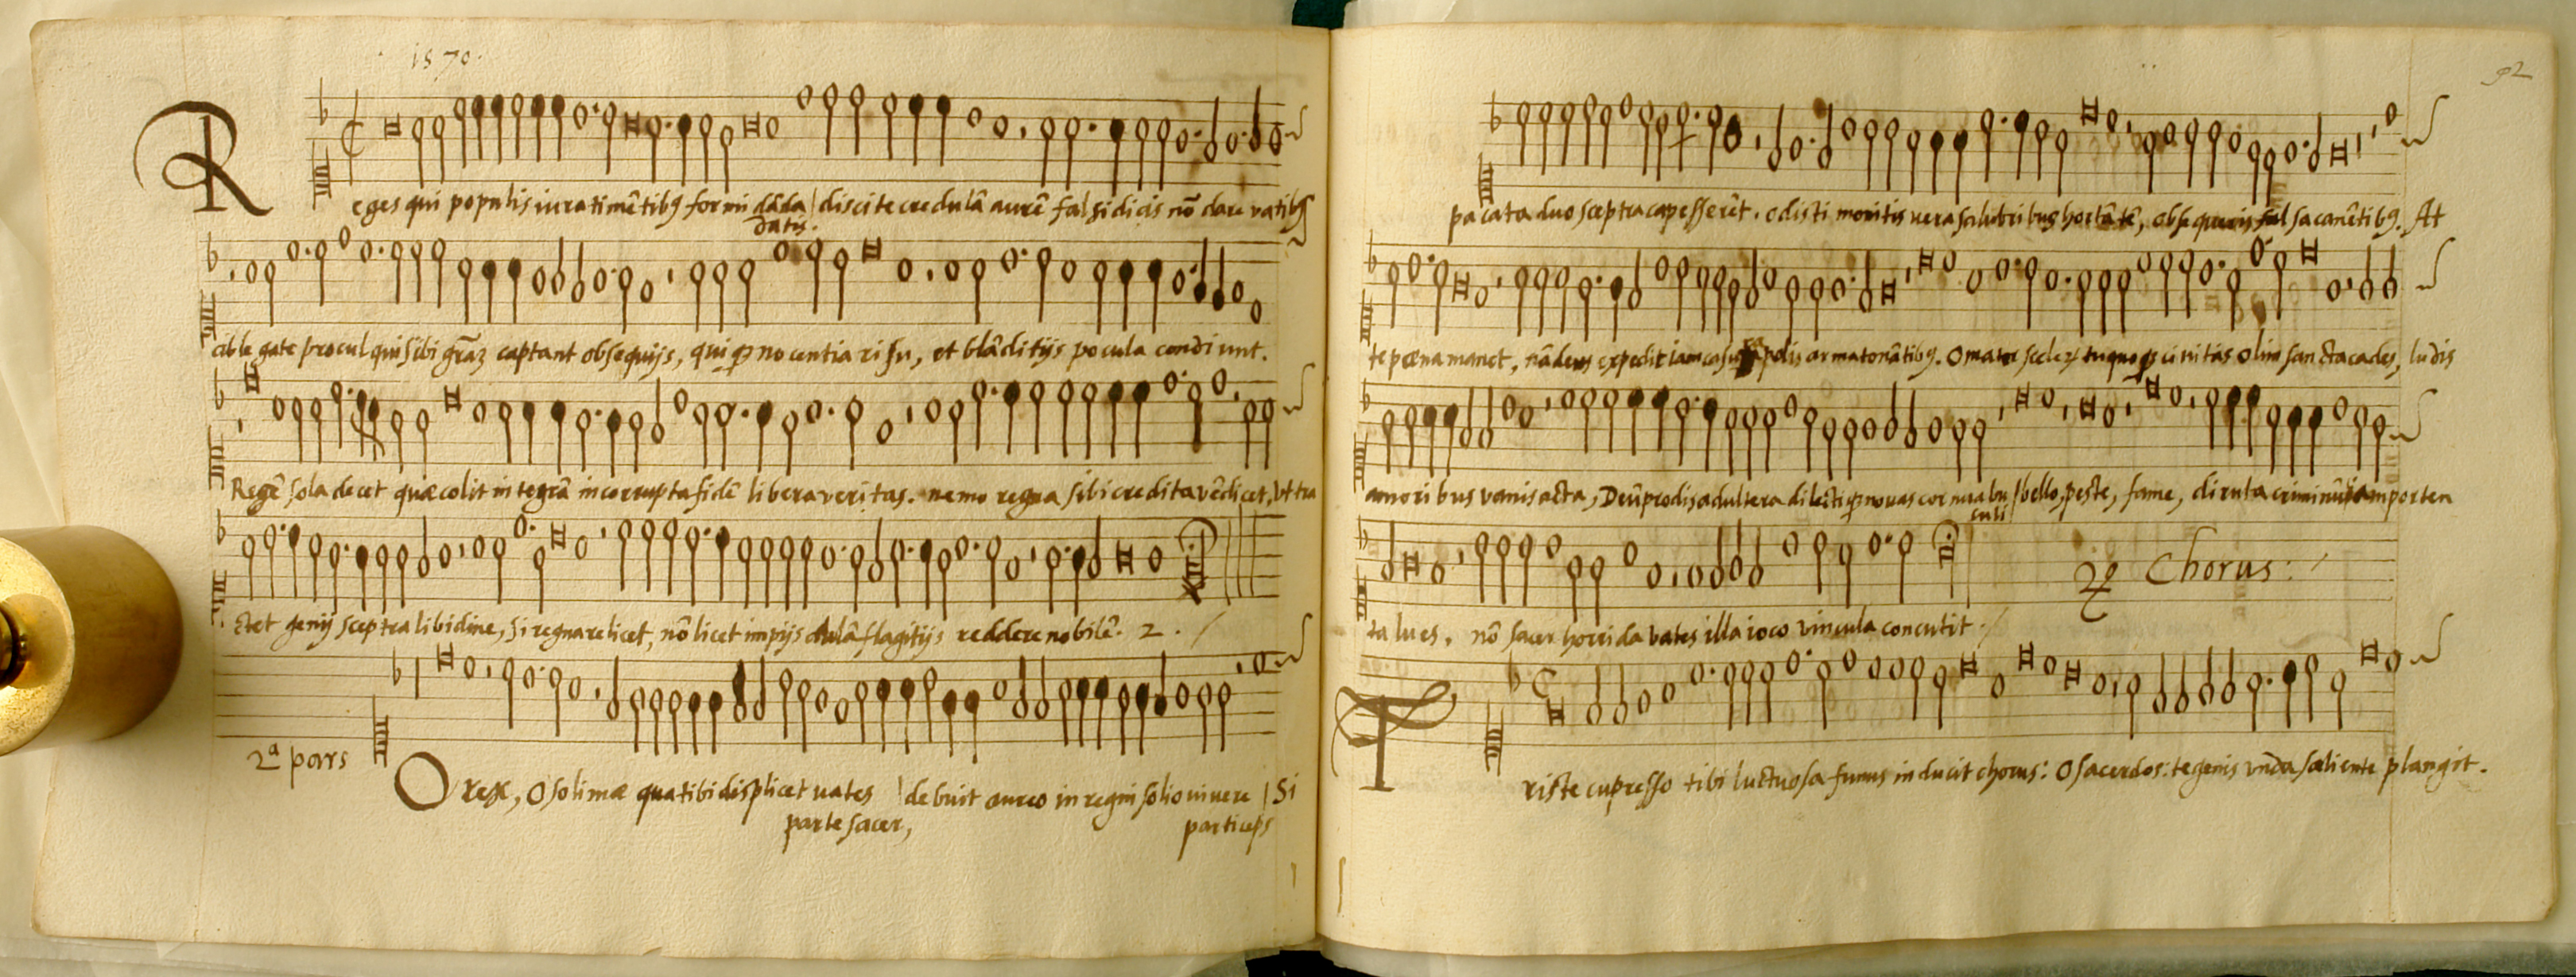 1570.
Reges qui populis iura timẽtibꝯ formi dãda | discite credulã aurẽ falsidicis nõ dare vatibꝯ
datis.
ablegate procul qui sibi grãꝫ captant obsequijs, qui nocentia risu, et blãditijs pocula condiunt.
Regẽ sola decet quæ colit integrã incorrupta fidẽ libera veritas. nemo regna sibi credita vẽdicet, vt tra
ctet genij sceptra libidine, si regnare licet, nõ licet impijs aulã flagitijs reddere nobilẽ. 2.
2ª pars
O rex, O solimæ qua tibi displicet uates | debuit aureo in regni solio viuere | Si
parte sacer, particeps
92
pacata duo sceptra capesserẽt. odisti monitis uera salubribus hortãtẽ, obsequeris falsa canẽtibꝯ. At
te pœna manet, nã deus expedit iam casus armatonãtibꝯ. O mater sceleꝝ tuquoqꝫ ciuitas olim sancta cades, ludis
amoribus vanis acta, Deũ prodis adultera dilectiqꝫ nouas cornua bu | bello, peste, fame, diruta criminũ porten
culi
ta lues. nõ sacer horrida vates illa ioco vincula concutit.
Chorus:
Triste cupresso tibi luctuosa funus inducit chorus: O sacerdos: te genis vnda saliente plangit.